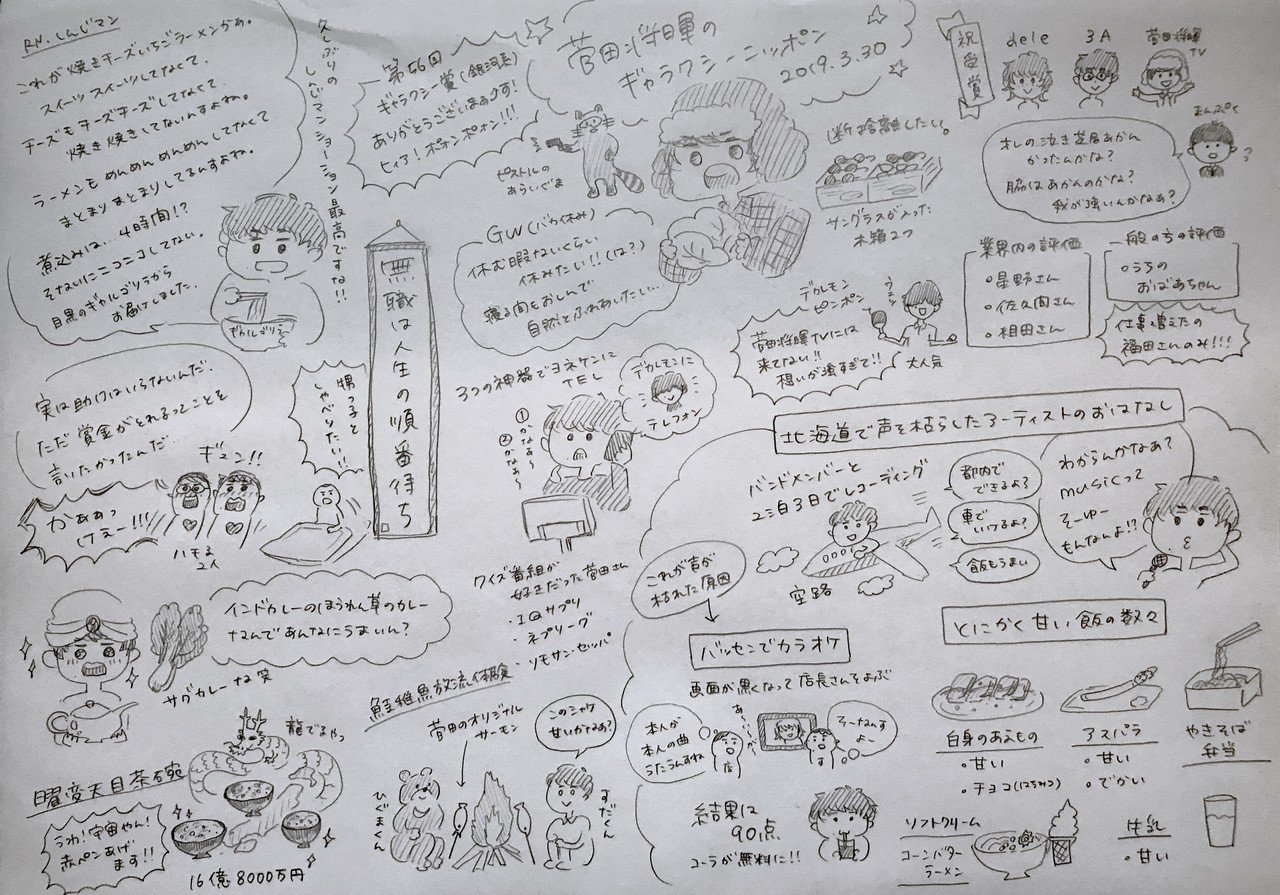 RN.しんじマン
これが焼きチーズいちごラーメンかぁ。
スイーツスイーツしてなくて、
チーズもチーズチーズしてなくて
焼き焼きしてないんすよね。
ラーメンもめんめんめんしてなくて
まとまりまとまりしてるんすよね。
煮込みは…4時間!?
そないにニコニコしてない。
目黒のギャルゴリラから
お届けしました。
ギャルゴリラ
久しぶりの
しんじマンショーション最高ですな!!
第56回
ギャラクシー賞(銀河系)
ありがとうございまぁす!
ヒィア!ポンポンポォン!!!
菅田将暉の
ギャラクシーニッポン
2019.3.30
ピストルの
あらいぐま
断捨離したい。
サングラスが入った
木箱2つ
祝受賞
dele
3A
菅田将暉
TV
まんぷく
オレの泣き芝居あかん
かったんかな?
脇はあかんのかな?
我が強いんかなぁ?
業界内の評価
・星野さん
・佐久間さん
・相田さん
一般の方の評価
・うちの
おばあちゃん
仕事増えたの
福田さんのみ!!!
無職は人生の順番待ち
GW(バカ休み)
休む暇ないくらい
休みたい!!(は?)
寝る間をおしんで
自然とふれあいたい…
デカレモン
ピンポン
菅田将暉TVには
来てない!!
想いが強すぎて!!
大人気
実は助けはいらないんだ。
ただ賞金がとれるってことを
言いたかったんだ…
ギュン!!
かぁぁっ
けぇー!!!
ハモる
2人
甥っ子と
しゃべりたい!!
3つの神器でヨネケンに
TEL
①かなぁ〜
②かなぁ〜
デカレモンに
テレフォン
クイズ番組が
好きだった菅田さん
・IQサプリ
・ネプリーグ
・ソモサン・セッパ
北海道で声を枯らしたアーティストのおはなし
バンドメンバーと
2泊3日でレコーディング
空路
都内で
できるよ?
車で
いけるよ?
飯もうまい
わからんかなぁ?
musicって
そーゆー
もんなんよ!?
これが声が
枯れた原因
バッセンでカラオケ
画面が黒くなって店長さんをよぶ
本人が
本人の曲
うたうんすね
あ〜
店
す
そーなんす
よ〜
結果は
90点
コーラが無料に!!
とにかく甘い飯の数々
白身のあるもの
・甘い
・チョコ(はちみつ)
アスパラ
・甘い
・でかい
やきそば
弁当
ソフトクリーム
コーンバター
ラーメン
牛乳
・甘い
インドカレーのほうれん草のカレー
なんであんなにうまいん?
サグカレーな笑
鮭稚魚放流体験
菅田のオリジナル
サーモン
このシャケ
甘いかなぁ?
ひぐまくん
すだくん
曜変天目茶碗
龍でるやつ
うわ!宇宙やん!
赤ペンあげ
ます!!
16億8000万円